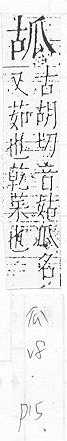 古胡切音姑瓜名
又茹也乾菜也
瓜
v8
.
p15.